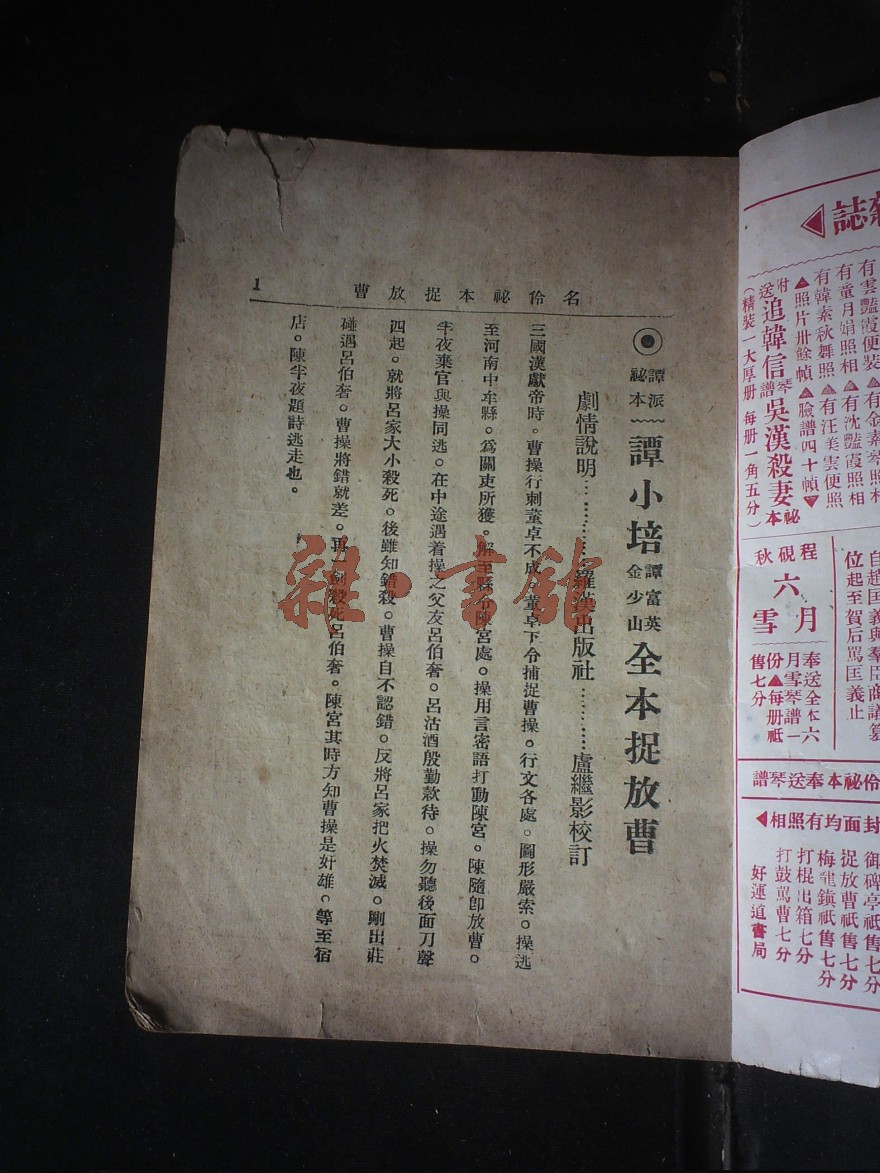 名伶祕本捉放曹
1
譚派祕本 譚小培 譚富英 金少山 全本捉放曹
劇情說明……………羅漢出版社…………盧繼影校訂
三國漢獻帝時。曹操行刺董卓不成。董卓下令捕捉曹操。行文各處。圖形嚴索。操逃
至河南中牟縣。爲關吏所獲。解至縣令陳宮處。操用言密語打動陳宮。陳隨卽放曹。
半夜棄官與操同逃。在中途遇着操之父友呂伯奢。呂沽酒殷勤款待。操勿聽後面刀聲
四起。就將呂家大小殺死。後雖知錯殺。曹操自不認錯。反將呂家把火焚滅。剛出莊
碰遇呂伯奢。曹操將錯就差。再一劍殺死呂伯奢。陳宮其時方知曹操是奸雄。等至宿
店。陳半夜題詩逃走也。
雜·書館
雜誌
有雲艷霞便裝▲有金素琴照相
有童月娟照相▲有沈艷霞照相
有韓素秋舞照▲有汪美雲便照
▲照片卅餘幀▲臉譜四十幀▼
附送追韓信琴譜吳漢殺妻祕本
(精裝一大厚册 每册一角五分)
自趙匡義與羣臣商議篡
位起至賀后罵匡義止
程硯秋
六月雪
奉送全本六
月雪琴譜一
份▲每册祗
售七分
伶祕本奉送琴譜
封面均有照相◀
御碑亭祗售七分
捉放曹祗售七分
梅龍鎮祗售七分
打棍出箱七分
打鼓罵曹七分
好運道書局